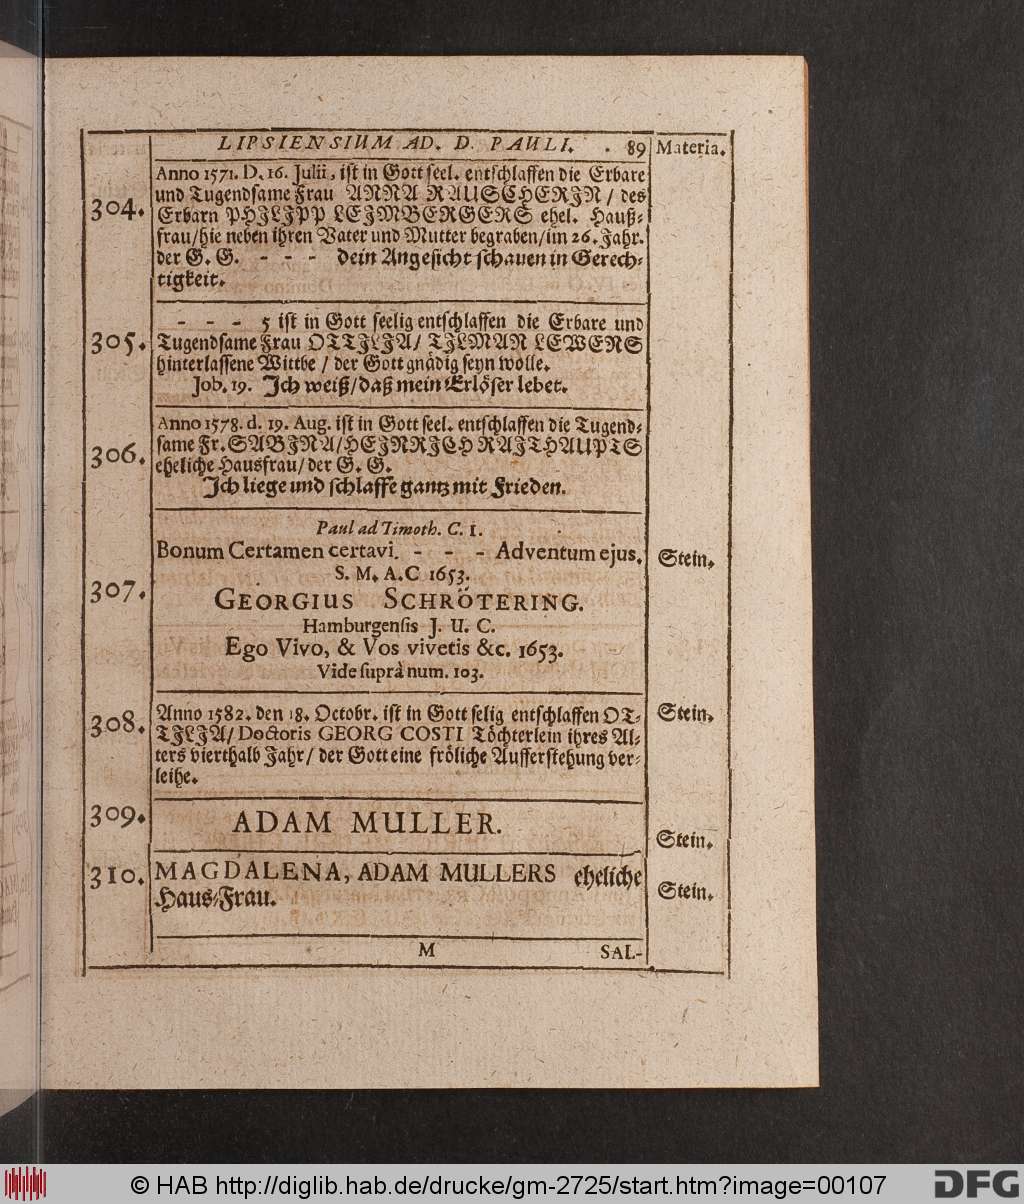 LIPSIENSIUM AD. D. PAULI. . 89 Materia.
304. Anno 1571. D. 16. Julii, iſt in Gott ſeel. entſchlaffen die Erbare
und Tugendſame Frau ANNA RAUSCHERIN / des
Erbarn PHILIPP LEIMBERGERS ehel. Hauß-
frau/hie neben ihren Vater und Mutter begraben/im 26. Jahr.
der G. G. - - - dein Angeſicht ſchauen in Gerech-
tigkeit.
305. - - - 5 iſt in Gott ſeelig entſchlaffen die Erbare und
Tugendſame Frau OTTILIA/ TILMAN LEWENS
hinterlaſſene Wittbe / der Gott gnädig ſeyn wolle.
Job. 19. Ich weiß/daß mein Erlöſer lebet.
306. Anno 1578. d. 19. Aug. iſt in Gott ſeel. entſchlaffen die Tugend-
ſame Fr. SABINA/HEINRICH RAITHAUPTS
eheliche Hausfrau/der G. G.
Ich liege und ſchlaffe gantz mit Frieden.
Paul ad Timoth. C. I.
Bonum Certamen certavi. - - - Adventum ejus. Stein.
S. M. A. C 1653.
307. GEORGIUS SCHRÖTERING.
Hamburgenſis J. U. C.
Ego Vivo, & Vos vivetis &c. 1653.
Vide ſuprà num. 103.
308. Anno 1582. den 18. Octobr. iſt in Gott ſelig entſchlaffen OT- Stein.
TILIA/ Doctoris GEORG COSTI Töchterlein ihres Al-
ters vierthalb Jahr/ der Gott eine fröliche Aufferſtehung ver-
leihe.
309. ADAM MULLER. Stein.
310. MAGDALENA, ADAM MULLERS eheliche Stein.
Haus-Frau.
M SAL-
© HAB http://diglib.hab.de/drucke/gm-2725/start.htm?image=00107 DFG